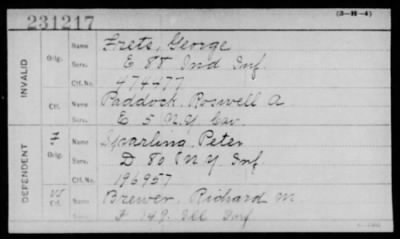 231217
(3-H-4)
INVALID
Orig.
Name Frets, George
Serv. E 88 Ind Inf.
Ctf. No. 474477
Ctf.
Name Paddock, Roswell A
Serv. E 5 N.Y. Cav.
DEPENDENT
Orig.
Name Sparling, Peter
Serv. D 80 N.Y. Inf.
Ctf. No. 196957
Ctf.
Name Brewer, Richard M.
149 Ill Inf